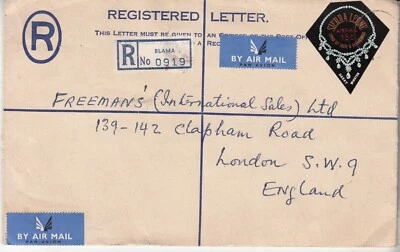 REGISTERED LETTER.
THIS LETTER MUST BE GIVEN TO AN OFFICER OF THE POST OF
R
BLAMA
R No 0919
A REC
BY AIR MAIL
PAR AVION
SIERRA LEONE
FREEMAN'S (International Sales) Ltd
139-142 Clapham Road
London S.W.9
England
BY AIR MAIL
PAR AVION